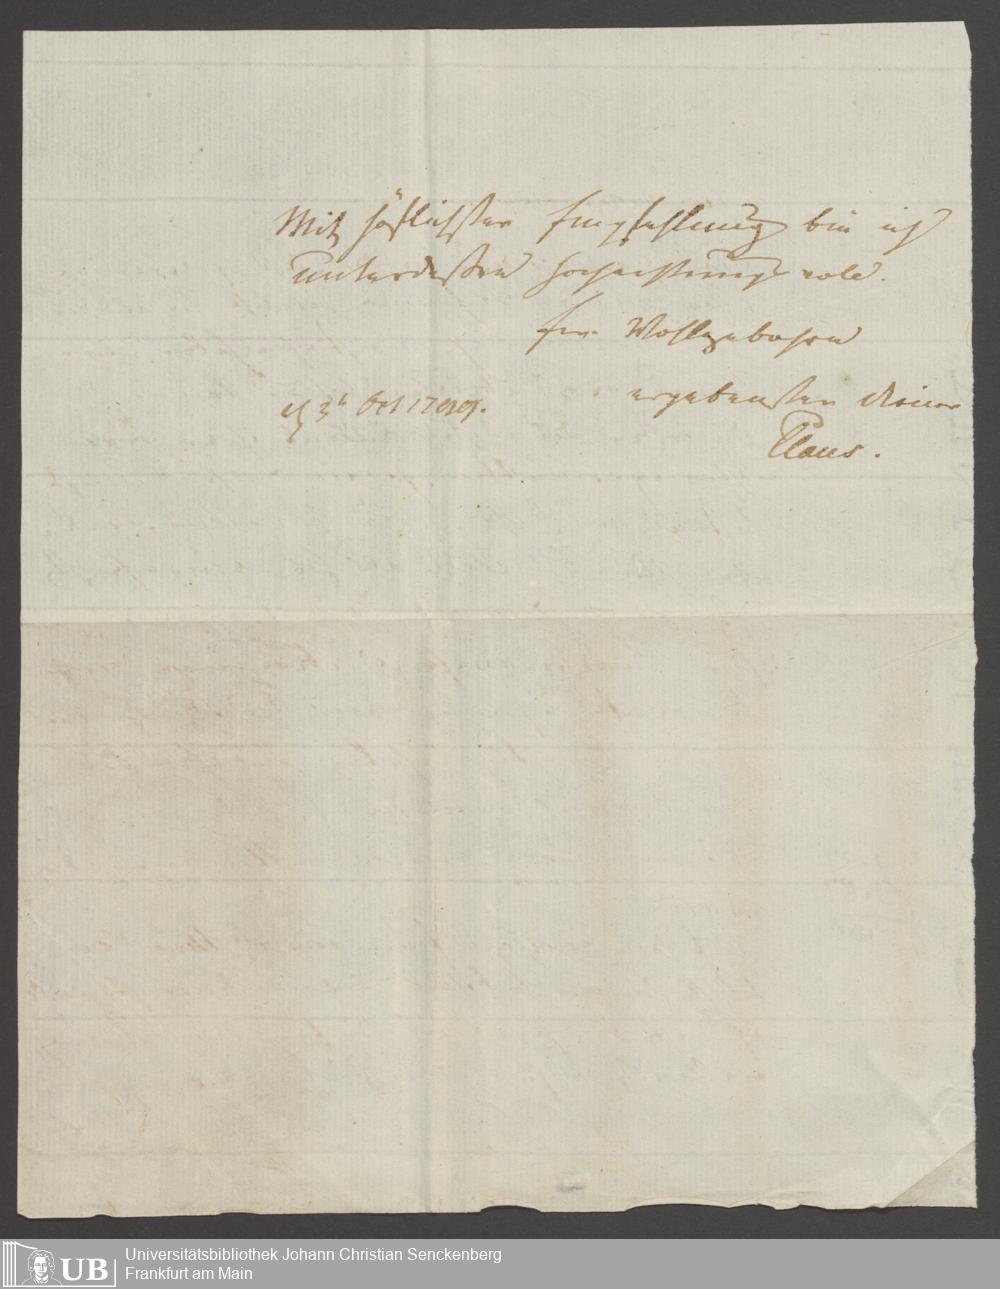 Mit höflichster Empfehlung bin ich
unterdessen hochachtungsvoll
Euer Wohlgebohren
ergebenster diener
Claus.
3t Oct
UB
Universitätsbibliothek Johann Christian Senckenberg
Frankfurt am Main